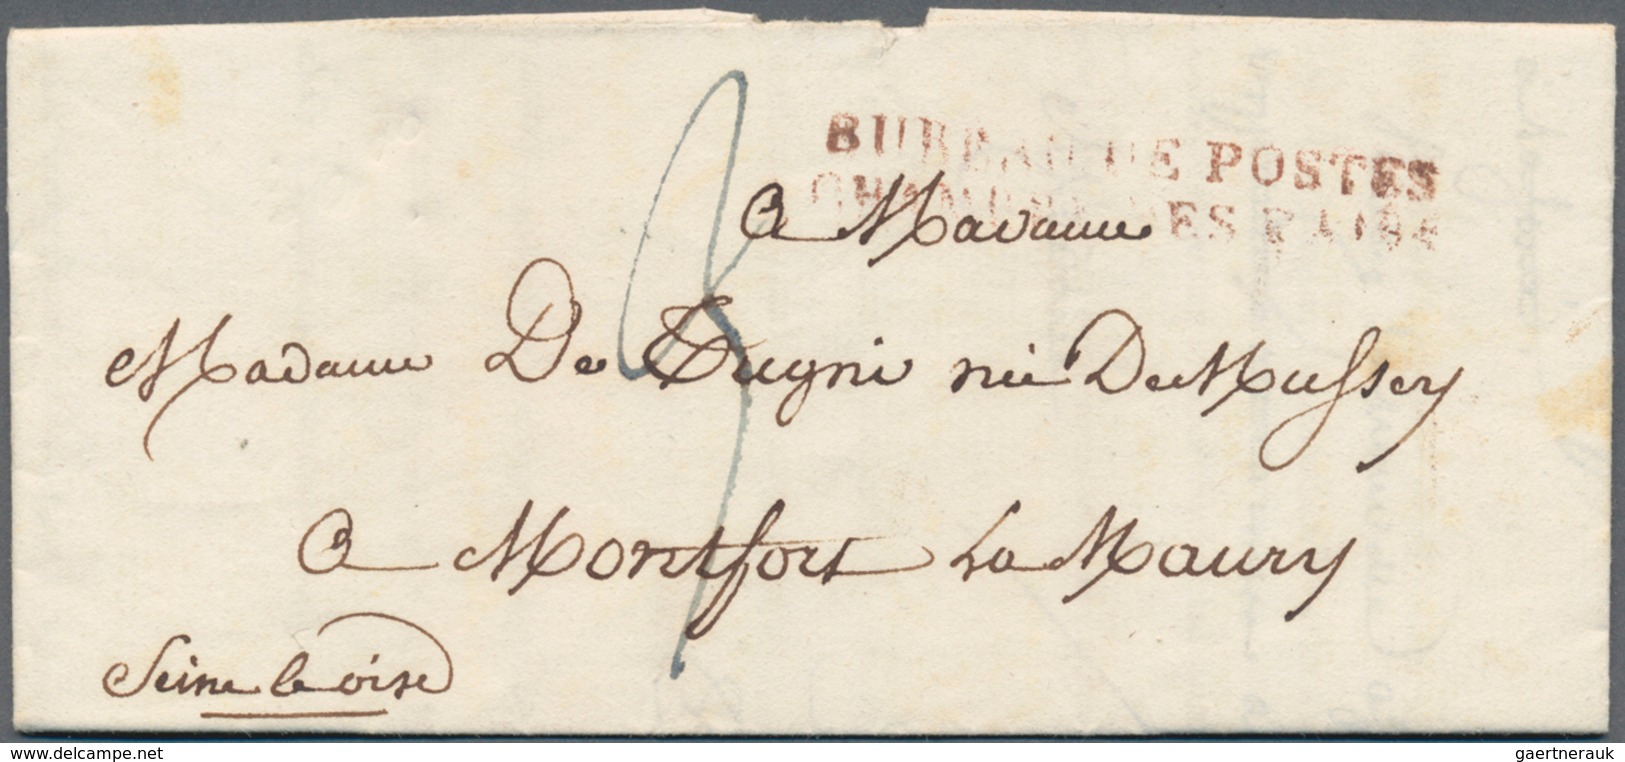 BUREAU DE POSTES
CHAMBRE DES PAIRS
3
A Madame
Madame De Tugni née De Mussey
A Montfort La Maury
Seine le oise
www.delcampe.net
gaertnerauk